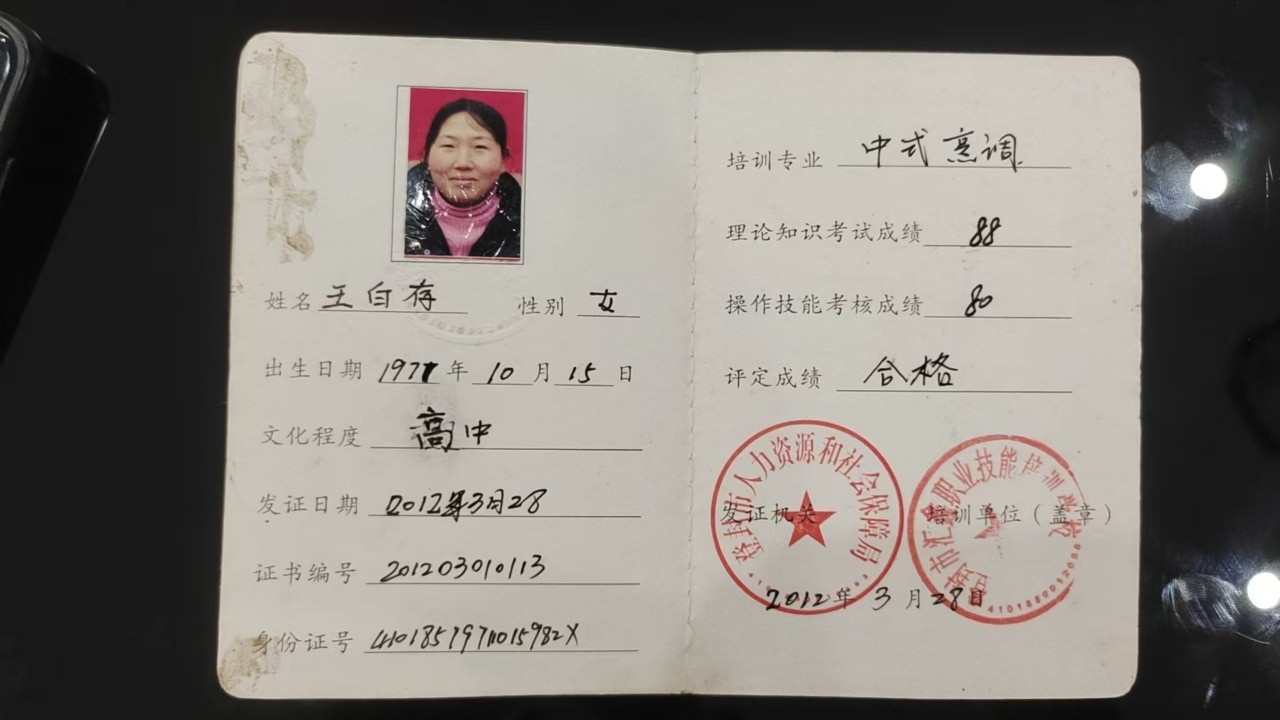 姓名 王白存 性别 女
出生日期 1971 年 10 月 15 日
文化程度 高中
发证日期 2012年3月28
证书编号 201203010113
身份证号
培训专业 中式烹调
理论知识考试成绩 88
操作技能考核成绩 80
评定成绩 合格
登封市人力资源和社会保障局
发证机关
职业技能培训学校
培训单位(盖章)
2012年 3 月 28日